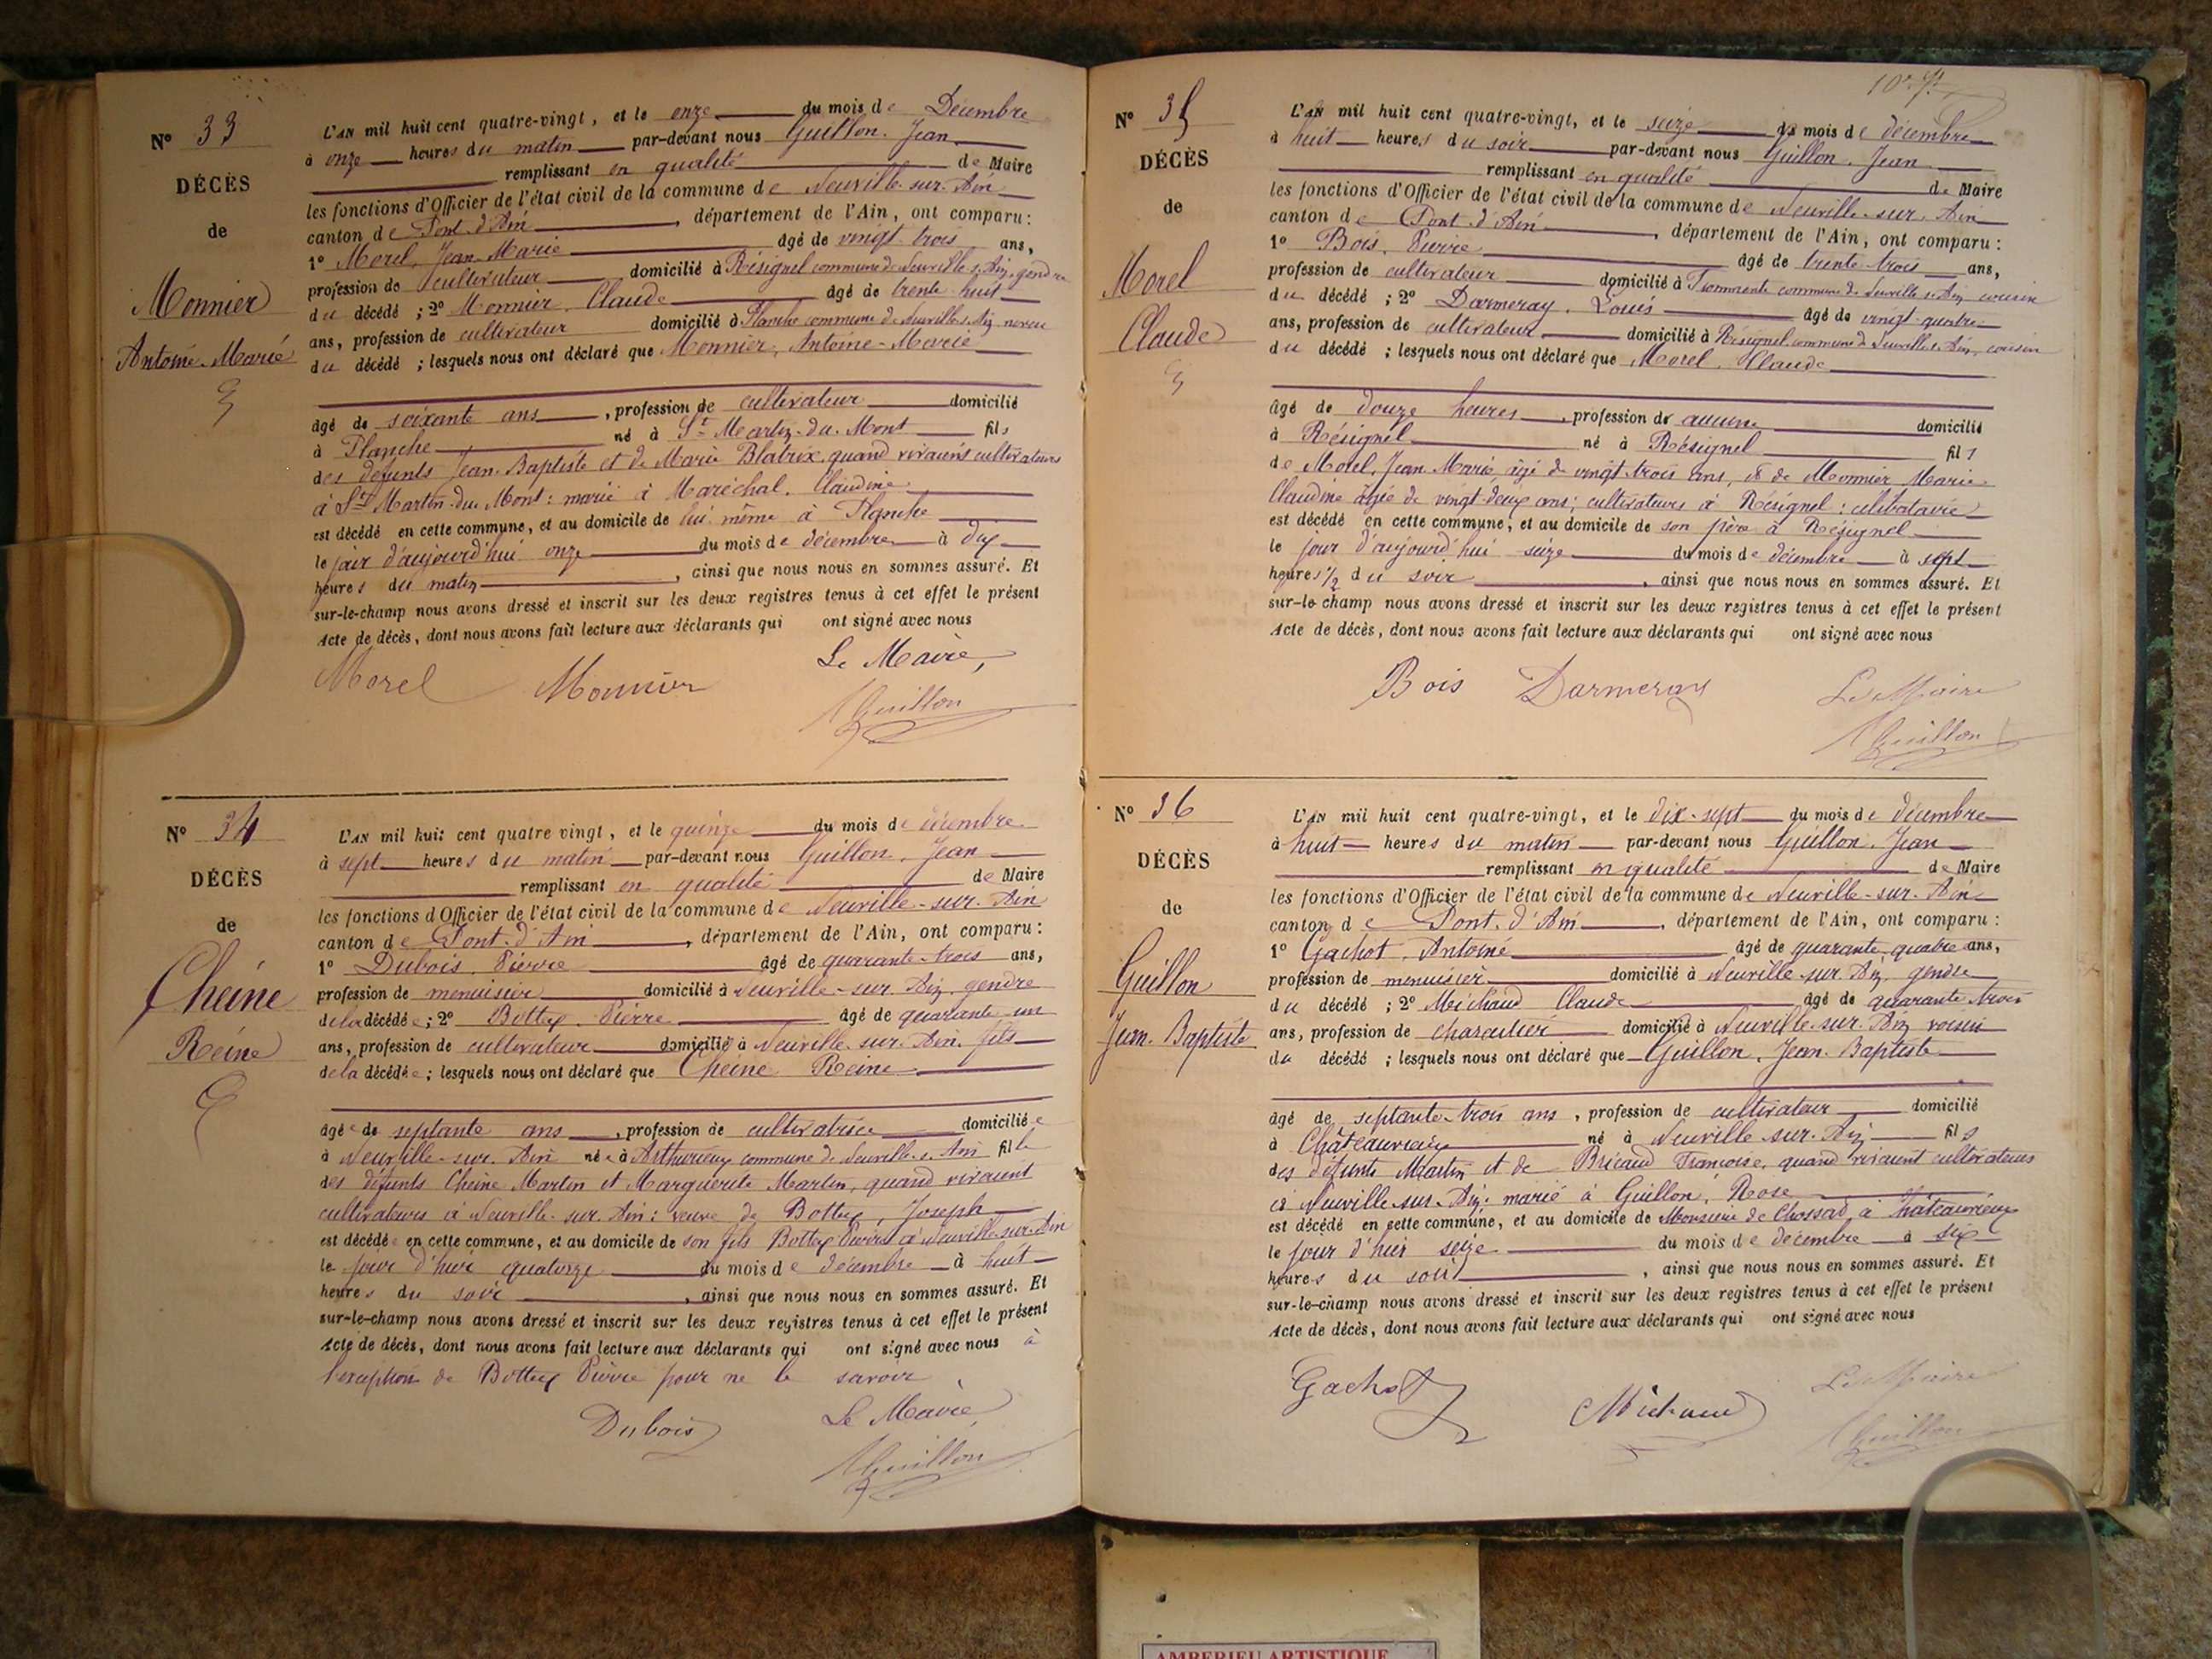 N° 33
DÉCÈS
de
Monnier
Antoine-Marie
L'AN mil huit cent quatre-vingt, et le onze du mois de Décembre
à onze heures du matin par-devant nous Guillon, Jean
remplissant en qualité de Maire
les fonctions d'Officier de l'état civil de la commune de Neuville-sur-Ain
canton de Pont-d'Ain, département de l'Ain, ont comparu:
1° Morel, Jean-Marie âgé de vingt-trois ans,
profession de cultivateur domicilié à Résignel commune de Neuville s. Ain, gendre
du décédé; 2° Monnier, Claude âgé de trente-huit
ans, profession de cultivateur domicilié à Planche commune de Neuville s. Ain neveu
du décédé; lesquels nous ont déclaré que Monnier, Antoine-Marie
âgé de soixante ans, profession de cultivateur domicilié
à Planche né à St Martin-du-Mont fils
des défunts Jean-Baptiste et de Marie Blatrix, quand vivaient cultivateurs
à St Martin-du-Mont: marié à Maréchal, Claudine
est décédé en cette commune, et au domicile de lui même à Planche
le jour d'aujourd'hui onze du mois de décembre à dix
heures du matin, ainsi que nous nous en sommes assuré. Et
sur-le-champ nous avons dressé et inscrit sur les deux registres tenus à cet effet le présent
Acte de décès, dont nous avons fait lecture aux déclarants qui ont signé avec nous
Morel Monnier Le Maire,
Guillon
N° 34
DÉCÈS
de
Cheine
Reine
L'AN mil huit cent quatre vingt, et le quinze du mois de décembre
à sept heures du matin par-devant nous Guillon, Jean
remplissant en qualité de Maire
les fonctions d'Officier de l'état civil de la commune de Neuville-sur-Ain
canton de Pont-d'Ain, département de l'Ain, ont comparu:
1° Dubois, Pierre âgé de quarante-trois ans,
profession de menuisier domicilié à Neuville-sur-Ain, gendre
de la décédée; 2° Bottex, Pierre âgé de quarante-un
ans, profession de cultivateur domicilié à Neuville-sur-Ain, fils
de la décédée; lesquels nous ont déclaré que Cheine Reine
âgée de septante ans, profession de cultivatrice domiciliée
à Neuville-sur-Ain née à Arthurieux commune de Neuville s. Ain fille
des défunts Cheine Martin et Marguerite Martin, quand vivaient
cultivateurs à Neuville-sur-Ain: veuve de Bottex, Joseph
est décédée en cette commune, et au domicile de son fils Bottex Pierre à Neuville-sur-Ain
le jour d'hier quatorze du mois de décembre à huit
heures du soir, ainsi que nous nous en sommes assuré. Et
sur-le-champ nous avons dressé et inscrit sur les deux registres tenus à cet effet le présent
Acte de décès, dont nous avons fait lecture aux déclarants qui ont signé avec nous à
l'exception de Bottex Pierre pour ne le savoir
Dubois Le Maire
Guillon
N° 35
DÉCÈS
de
Morel
Claude
L'AN mil huit cent quatre-vingt, et le seize du mois de décembre
à huit heures du soir par-devant nous Guillon, Jean
remplissant en qualité de Maire
les fonctions d'Officier de l'état civil de la commune de Neuville-sur-Ain
canton de Pont-d'Ain, département de l'Ain, ont comparu:
1° Bois, Pierre âgé de trente-trois ans,
profession de cultivateur domicilié à commune de Neuville s. Ain cousin
du décédé; 2° Darmeray, Louis âgé de vingt-quatre
ans, profession de cultivateur domicilié à Résignel commune de Neuville s. Ain, cousin
du décédé; lesquels nous ont déclaré que Morel, Claude
âgé de douze heures, profession de aucune domicilié
à Résignel né à Résignel fils
de Morel, Jean Marie, âgé de vingt-trois ans, et de Monnier Marie-
Claudine âgée de vingt-deux ans; cultivateurs à Résignel: célibataire
est décédé en cette commune, et au domicile de son père à Résignel
le jour d'aujourd'hui seize du mois de décembre à sept
heures 1/2 du soir, ainsi que nous nous en sommes assuré. Et
sur-le-champ nous avons dressé et inscrit sur les deux registres tenus à cet effet le présent
Acte de décès, dont nous avons fait lecture aux déclarants qui ont signé avec nous
Bois Darmeray Le Maire
Guillon
N° 36
DÉCÈS
de
Guillon
Jean-Baptiste
L'AN mil huit cent quatre-vingt, et le dix-sept du mois de décembre
à huit heures du matin par-devant nous Guillon, Jean
remplissant en qualité de Maire
les fonctions d'Officier de l'état civil de la commune de Neuville-sur-Ain
canton de Pont-d'Ain, département de l'Ain, ont comparu:
1° Gachot, Antoine âgé de quarante-quatre ans,
profession de menuisier domicilié à Neuville-sur-Ain, gendre
du décédé; 2° Michaud Claude âgé de quarante-trois
ans, profession de charcutier domicilié à Neuville-sur-Ain voisin
du décédé; lesquels nous ont déclaré que Guillon, Jean-Baptiste
âgé de septante-trois ans, profession de cultivateur domicilié
à Châteauvieux né à Neuville-sur-Ain fils
des défunts Martin et de Bricaud Françoise, quand vivaient cultivateurs
à Neuville-sur-Ain: marié à Guillon, Rose
est décédé en cette commune, et au domicile de Monsieur de Chossad à Châteauvieux
le jour d'hier seize du mois de décembre à six
heures du soir, ainsi que nous nous en sommes assuré. Et
sur-le-champ nous avons dressé et inscrit sur les deux registres tenus à cet effet le présent
Acte de décès, dont nous avons fait lecture aux déclarants qui ont signé avec nous
Gachot Michaud Le Maire
Guillon
AMBERIEU ARTISTIQUE